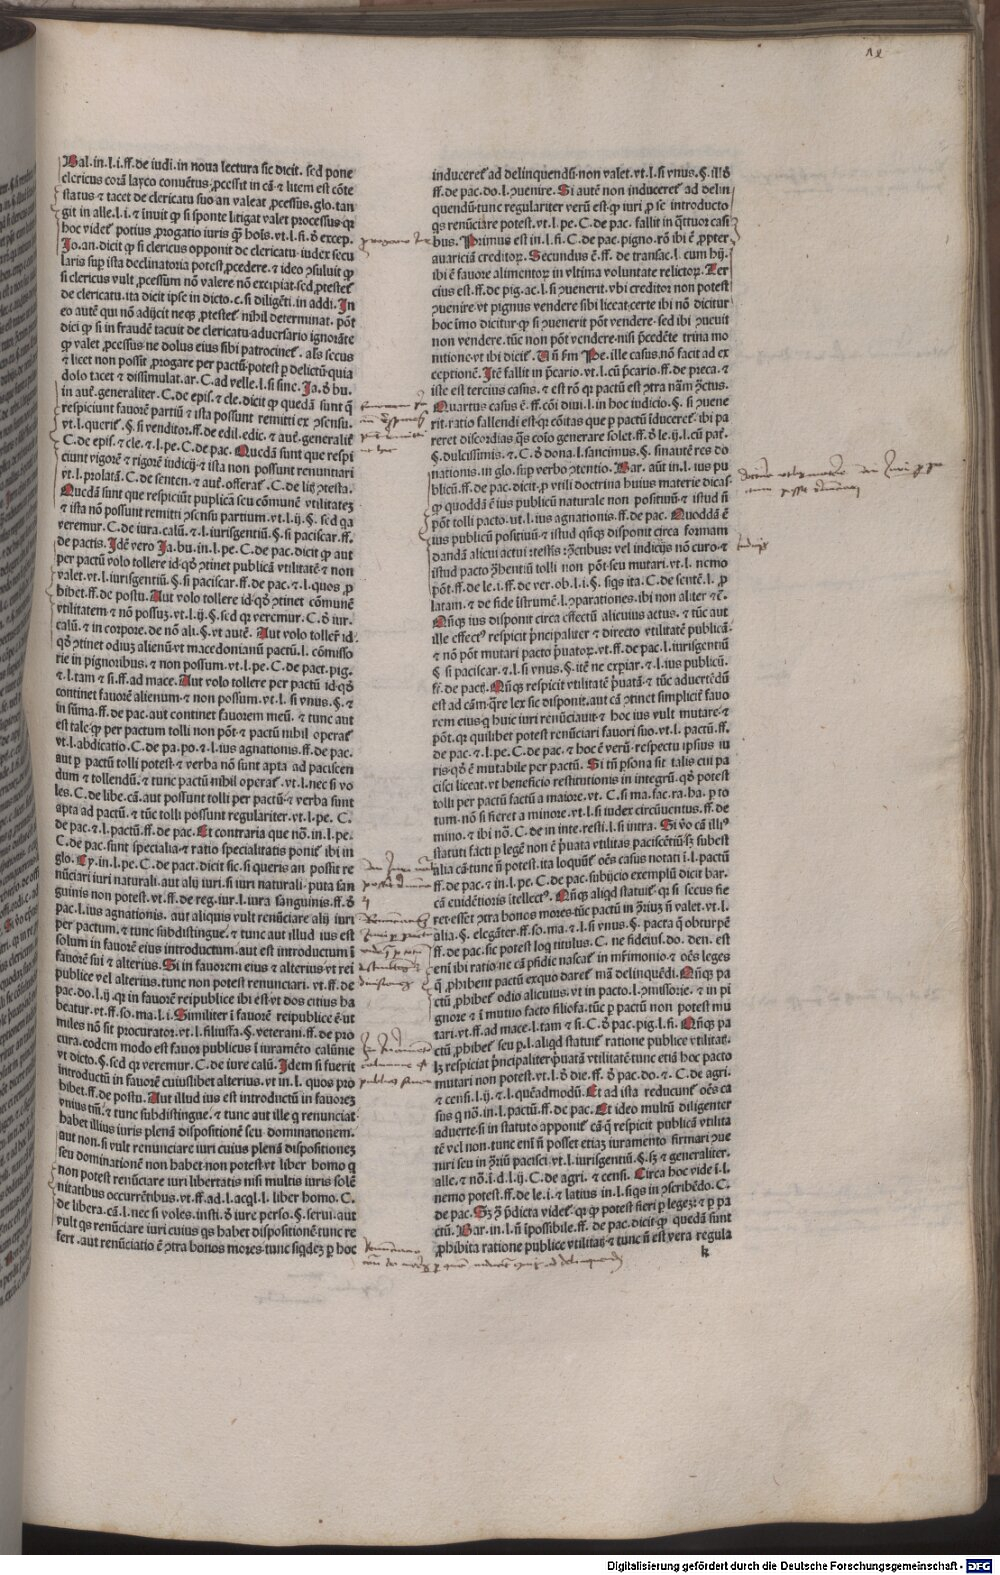 Bal. in. l. i. ff. de iudi. in noua lectura sic dicit. sed pone
clericus corā layco conuētus ꝓcessit in cā ⁊ litem est cōte
status ⁊ tacet de clericatu suo an valeat ꝓcessus. glo. tan
git in alle. l. i. ⁊ īnuit ꝙ si sponte litigat valet processus qꝛ
hoc videt potius ꝓrogatio iuris
Jo. an. dicit ꝙ si clericus opponit de clericatu iudex secu
laris sup ista declinatoria potest ꝓcedere. ⁊ ideo ↄsuluit ꝙ
si clericus vult ꝓcessum nō valere nō excipiat sed ꝓtestet
de clericatu. ita dicit ipse in dicto. c. si diligēti. in addi. In
eo autē qui nō adijcit neqꝫ ꝓtestet nihil determinat. pōt
dici ꝙ si in fraudē tacuit de clericatu aduersario ignorāte
ꝙ valet ꝓcessus ne dolus eius sibi patrocinet. als secus
⁊ licet non possit ꝓrogare per pactū potest ꝑ delictū quia
dolo tacet ⁊ dissimulat. ar. C. ad velle. l. si sine. Ja. d̄ bu.
in autē. generaliter. C. de epis. ⁊ cle. dicit ꝙ quedā sunt q̄
respiciunt fauorē partiū ⁊ ista possunt remitti ex ↄsensu.
vt. l. querit. §. si venditor. ff. de edil. edic. ⁊ autē. generalit
C. de epis. ⁊ cle. ⁊ l. pe. C. de pac. Quedā sunt que respi
ciunt vigorē ⁊ rigorē iudicij ⁊ ista non possunt renuntiari
vt. l. prolatā. C. de senten. ⁊ autē. offerat. C. de lit ꝯtesta.
Quedā sunt que respiciūt publicā seu cōmunē vtilitatez
⁊ ista nō possunt remitti ↄsensu partium. vt. l. ij. §. sed qꝛ
veremur. C. de iura. calū. ⁊ l. iurisgentiū. §. si paciscar. ff.
de pactis. Idē vero Ja. bu. in. l. pe. C. de pac. dicit ꝙ aut
per pactū volo tollere id qd̓ ꝯtinet publicā vtilitatē ⁊ non
valet. vt. l. iurisgentiū. §. si paciscar. ff. de pac. ⁊ l. quos ꝓ
hibet. ff. de postu. Aut volo tollere id qd̓ ꝯtinet cōmunē
vtilitatem ⁊ nō possuz. vt. l. ij. §. sed qꝛ veremur. C. d̄ iur.
calū. ⁊ in corpore. de nō ali. §. vt autē. Aut volo tollere id
qd̓ ꝯtinet odiuz alienū vt macedonianū pactū. l. cōmisso
rie in pignoribus. ⁊ non possum. vt. l. pe. C. de pact. pig.
⁊ l. tam ⁊ si. ff. ad mace. Aut volo tollere per pactū id qd̓
continet fauorē alienum ⁊ non possum. vt. l. si vnus. §. ⁊
in sūma. ff. de pac. aut continet fauorem meū. ⁊ tunc aut
est tale ꝙ per pactum tolli non pōt ⁊ pactū nihil operat
vt. l. abdicatio. C. de pa. po. ⁊ l. ius agnationis. ff. de pac.
aut ꝑ pactū tolli potest ⁊ verba nō sunt apta ad paciscen
dum ⁊ tollendū. ⁊ tunc pactū nihil operat. vt. l. nec si vo
les. C. de libe. cā. aut possunt tolli per pactū ⁊ verba sunt
apta ad pactū. ⁊ tūc tolli possunt regulariter. vt. l. pe. C.
de pac. ⁊ l. pactū. ff. de pac. Et contraria que nō. in. l. pe.
C. de pac. sunt specialia ⁊ ratio specialitatis ponit ibi in
glo. Cy. in. l. pe. C. de pact. dicit sic. si queris an possit re
nūciari iuri naturali. aut alij iuri. si iuri naturali puta san
guinis non potest. vt. ff. de reg. iur. l. iura sanguinis. ff. d̄
pac. l. ius agnationis. aut aliquis vult renūciare alij iuri
per pactum. ⁊ tunc subdistingue. ⁊ tunc aut illud ius est
solum in fauorē eius introductum. aut est introductum ī
fauorē sui ⁊ alterius. Si in fauorem eius ⁊ alterius vt rei
publice vel alterius. tunc non potest renunciari. vt. ff. de
pac. do. l. ij. qꝛ in fauorē reipublice ibi est vt dos citius ha
beatur. vt. ff. so. ma. l. i. Similiter ī fauorē reipublice ē vt
miles nō sit procurator. vt. l. filiussa. §. veterani. ff. de pro
cura. eodem modo est fauor publicus ī iuramēto calūnie
vt dicto. §. sed qꝛ veremur. C. de iure calū. Idem si fuerit
introductū in fauorē cuiuslibet alterius. vt in. l. quos pro
hibet. ff. de postu. Aut illud ius est introductū in fauorez
vnius tm̄. ⁊ tunc subdistingue. ⁊ tunc aut ille q̄ renunciat
habet illius iuris plenā dispositionē seu dominationem.
aut non. si vult renunciare iuri cuius plenā dispositionez
seu dominationē non habet non potest vt liber homo q̄
non potest renūciare iuri libertatis nisi multis iuris solē
nitatibus occurrētibus. vt. ff. ad. l. acql. l. liber homo. C.
de libera. cā. l. nec si voles. insti. d̄ iure perso. §. serui. aut
vult qs renūciare iuri cuius qs habet dispositionē tunc re
fert. aut renūciatio ē ꝯtra bonos mores tunc siqdez ꝑ hoc
induceret ad delinquendū non valet. vt. l. si vnus. §. illd̓
ff. de pac. do. l. ꝯuenire. Si autē non induceret ad delin
quendū tunc regulariter verū est ꝙ iuri ꝓ se introducto
qs renūciare potest. vt. l. pe. C. de pac. fallit in qttuor casi
bus. Primus est in. l. fi. C. de pac. pigno. rō ibi ē ꝓpter
auariciā creditoꝝ. Secundus ē. ff. de transac. l. cum hij.
ibi ē fauore alimentoꝝ in vltima voluntate relictoꝝ. Ter
cius est. ff. de pig. ac. l. si ꝯuenerit. vbi creditor non potest
ꝯuenire vt pignus vendere sibi liceat certe ibi nō dicitur
hoc imo dicitur ꝙ si ꝯuenerit pōt vendere. sed ibi ꝯuenit
non vendere. tūc non pōt vendere nisi p̄cedēte trina mo
nitione vt ibi dicit. Un̄ fm Pe. ille casus nō facit ad ex
ceptionē. Itē fallit in p̄cario. vt. l. cū p̄cario. ff. de preca. ⁊
iste est tercius casus. ⁊ est rō qꝛ pactū est ꝯtra nām ꝯctus.
Quartus casus ē. ff. cōi diui. l. in hoc iudicio. §. si ꝯuene
rit. ratio fallendi est qꝛ cōitas que ꝑ pactū īduceret ibi pa
reret discordias qs cōio generare solet. ff. d̄ le. ij. l. cū pat.
§. dulcissimis. ⁊ C. d̄ dona. l. sancimus. §. sinautē res do
nationis. in glo. sup verbo ꝯtentio. Bar. aūt in. l. ius pu
blicū. ff. de pac. dicit ꝓ vtili doctrina huius materie dicas
ꝙ quoddā ē ius publicū naturale non positiuū ⁊ istud nō
pōt tolli pacto. vt. l. ius agnationis. ff. de pac. Quoddā ē
ius publicū positiuū ⁊ istud qnqꝫ disponit circa formam
dandā alicui actui: testis: ꝯctibus: vel indicijs nō curo ⁊
istud pacto ꝯhentiū tolli non pōt seu mutari. vt. l. nemo
pōt. ff. de le. i. ff. de ver. ob. l. i. §. siqs ita. C. de sentē. l. ꝓ
latam. ⁊ de fide istrumē. l. ↄparationes. ibi non aliter ⁊ē.
Qn̄qꝫ ius disponit circa effectū alicuius actus. ⁊ tūc aut
ille effectꝰ respicit p̄ncipaliter ⁊ directo vtilitatē publicā
⁊ nō pōt mutari pacto p̄uatoꝝ. vt. ff. de pac. l. iurisgentiū
§ si paciscar. ⁊ l. si vnus. §. itē ne expiar. ⁊ l. ius publicū.
ff. de pact. Qn̄qꝫ respicit vtilitatē p̄uatā. ⁊ tūc aduertēdū
est ad cām qre lex sic disponit. aut cā ꝯtinet simplicit fauo
rem eius ꝙ huic iuri renūciauit ⁊ hoc ius vult mutare ⁊
pōt. qꝛ quilibet potest renūciari fauori suo. vt. l. pactū. ff.
de pac. ⁊ l. pe. C. de pac. ⁊ hoc ē verū respectu ipsius iu
ris qd̓ ē mutabile per pactū. Si tn̄ psona sit talis cui pa
cisci liceat. vt beneficio restitutionis in integrū. qd̓ potest
tolli per pactū factū a maiore. vt. C. si ma. fac. ra. ba. ꝓ to
tum. nō si fieret a minore. vt. l. si iudex circūuentus. ff. de
mino. ⁊ ibi nō. C. de in inte. resti. l. si intra. Si v̄o cā illiꝰ
statuti facti ꝑ legē non ē p̄uata vtilitas paciscētiū sz subest
alia cā tunc n̄ potest. ita loquūt oēs casus notati ī. l. pactū
ff. de pac. ⁊ in. l. pe. C. de pac. subijcio exemplū dicit bar.
cā euidētioris ītellectꝰ. Qn̄qꝫ aliqd statuit qꝛ si secus fie
ret esset ꝯtra bonos mores tūc pactū in ꝯriuz n̄ valet. vt. l.
alia. §. elegāter. ff. so. ma. ⁊ l. si vnus. §. pacta q̄ obturpē
ff. de pac. sic potest loq titulus. C. ne fideius. do. den. est
enī ibi ratio ne cā pfidie nascat in mr̄imonio. ⁊ oēs leges
q̄ ꝓhibent pactū exquo daret mā delinquēdi. Qn̄qꝫ pa
ctū ꝓhibet odio alicuius. vt in pacto. l. ↄmissorie. ⁊ in pi
gnore ⁊ ī mutuo facto filiofa. tūc ꝑ pactū non potest mu
tari. vt. ff. ad mace. l. tam ⁊ si. C. d̄ pac. pig. l. fi. Qn̄qꝫ pa
ctū ꝓhibet seu ꝑ. l. aliqd statuit ratione publice vtilitatis.
lz respiciat p̄ncipaliter p̄uatā vtilitatē tunc etiā hoc pacto
mutari non potest. vt. l. d̄ die. ff. d̄ pac. do. ⁊. C. de agri.
⁊ censi. l. ij. ⁊ l. quēadmodū. Et ad ista reducunt oēs ca
sus q nō. in. l. pactū. ff. de pac. Et ideo multū diligenter
aduerte si in statuto apponit cā q̄ respicit publicā vtilita
tē vel non. tunc enī n̄ posset etiaz iuramento firmari ꝯue
niri seu in ꝯriū pacisci. vt. l. iurisgentiū. §. sz ⁊ generaliter.
alle. ⁊ nō. i. d. l. ij. C. de agri. ⁊ censi. Circa hoc vide ī. l.
nemo potest. ff. de le. i. ⁊ latius in. l. siqs in ↄscribēdo. C.
de pac. Sz ꝯ p̄dicta videt qꝛ ꝙ potest fieri ꝑ legez ⁊ ꝑ pa
ctū. Bar. in. l. n̄ īpossibile. ff. de pac. dicit ꝙ quedā sunt
ꝓhibita ratione publice vtilitatis ⁊ tunc n̄ est vera regula
k
Digitalisierung gefördert durch die Deutsche Forschungsgemeinschaft - DFG